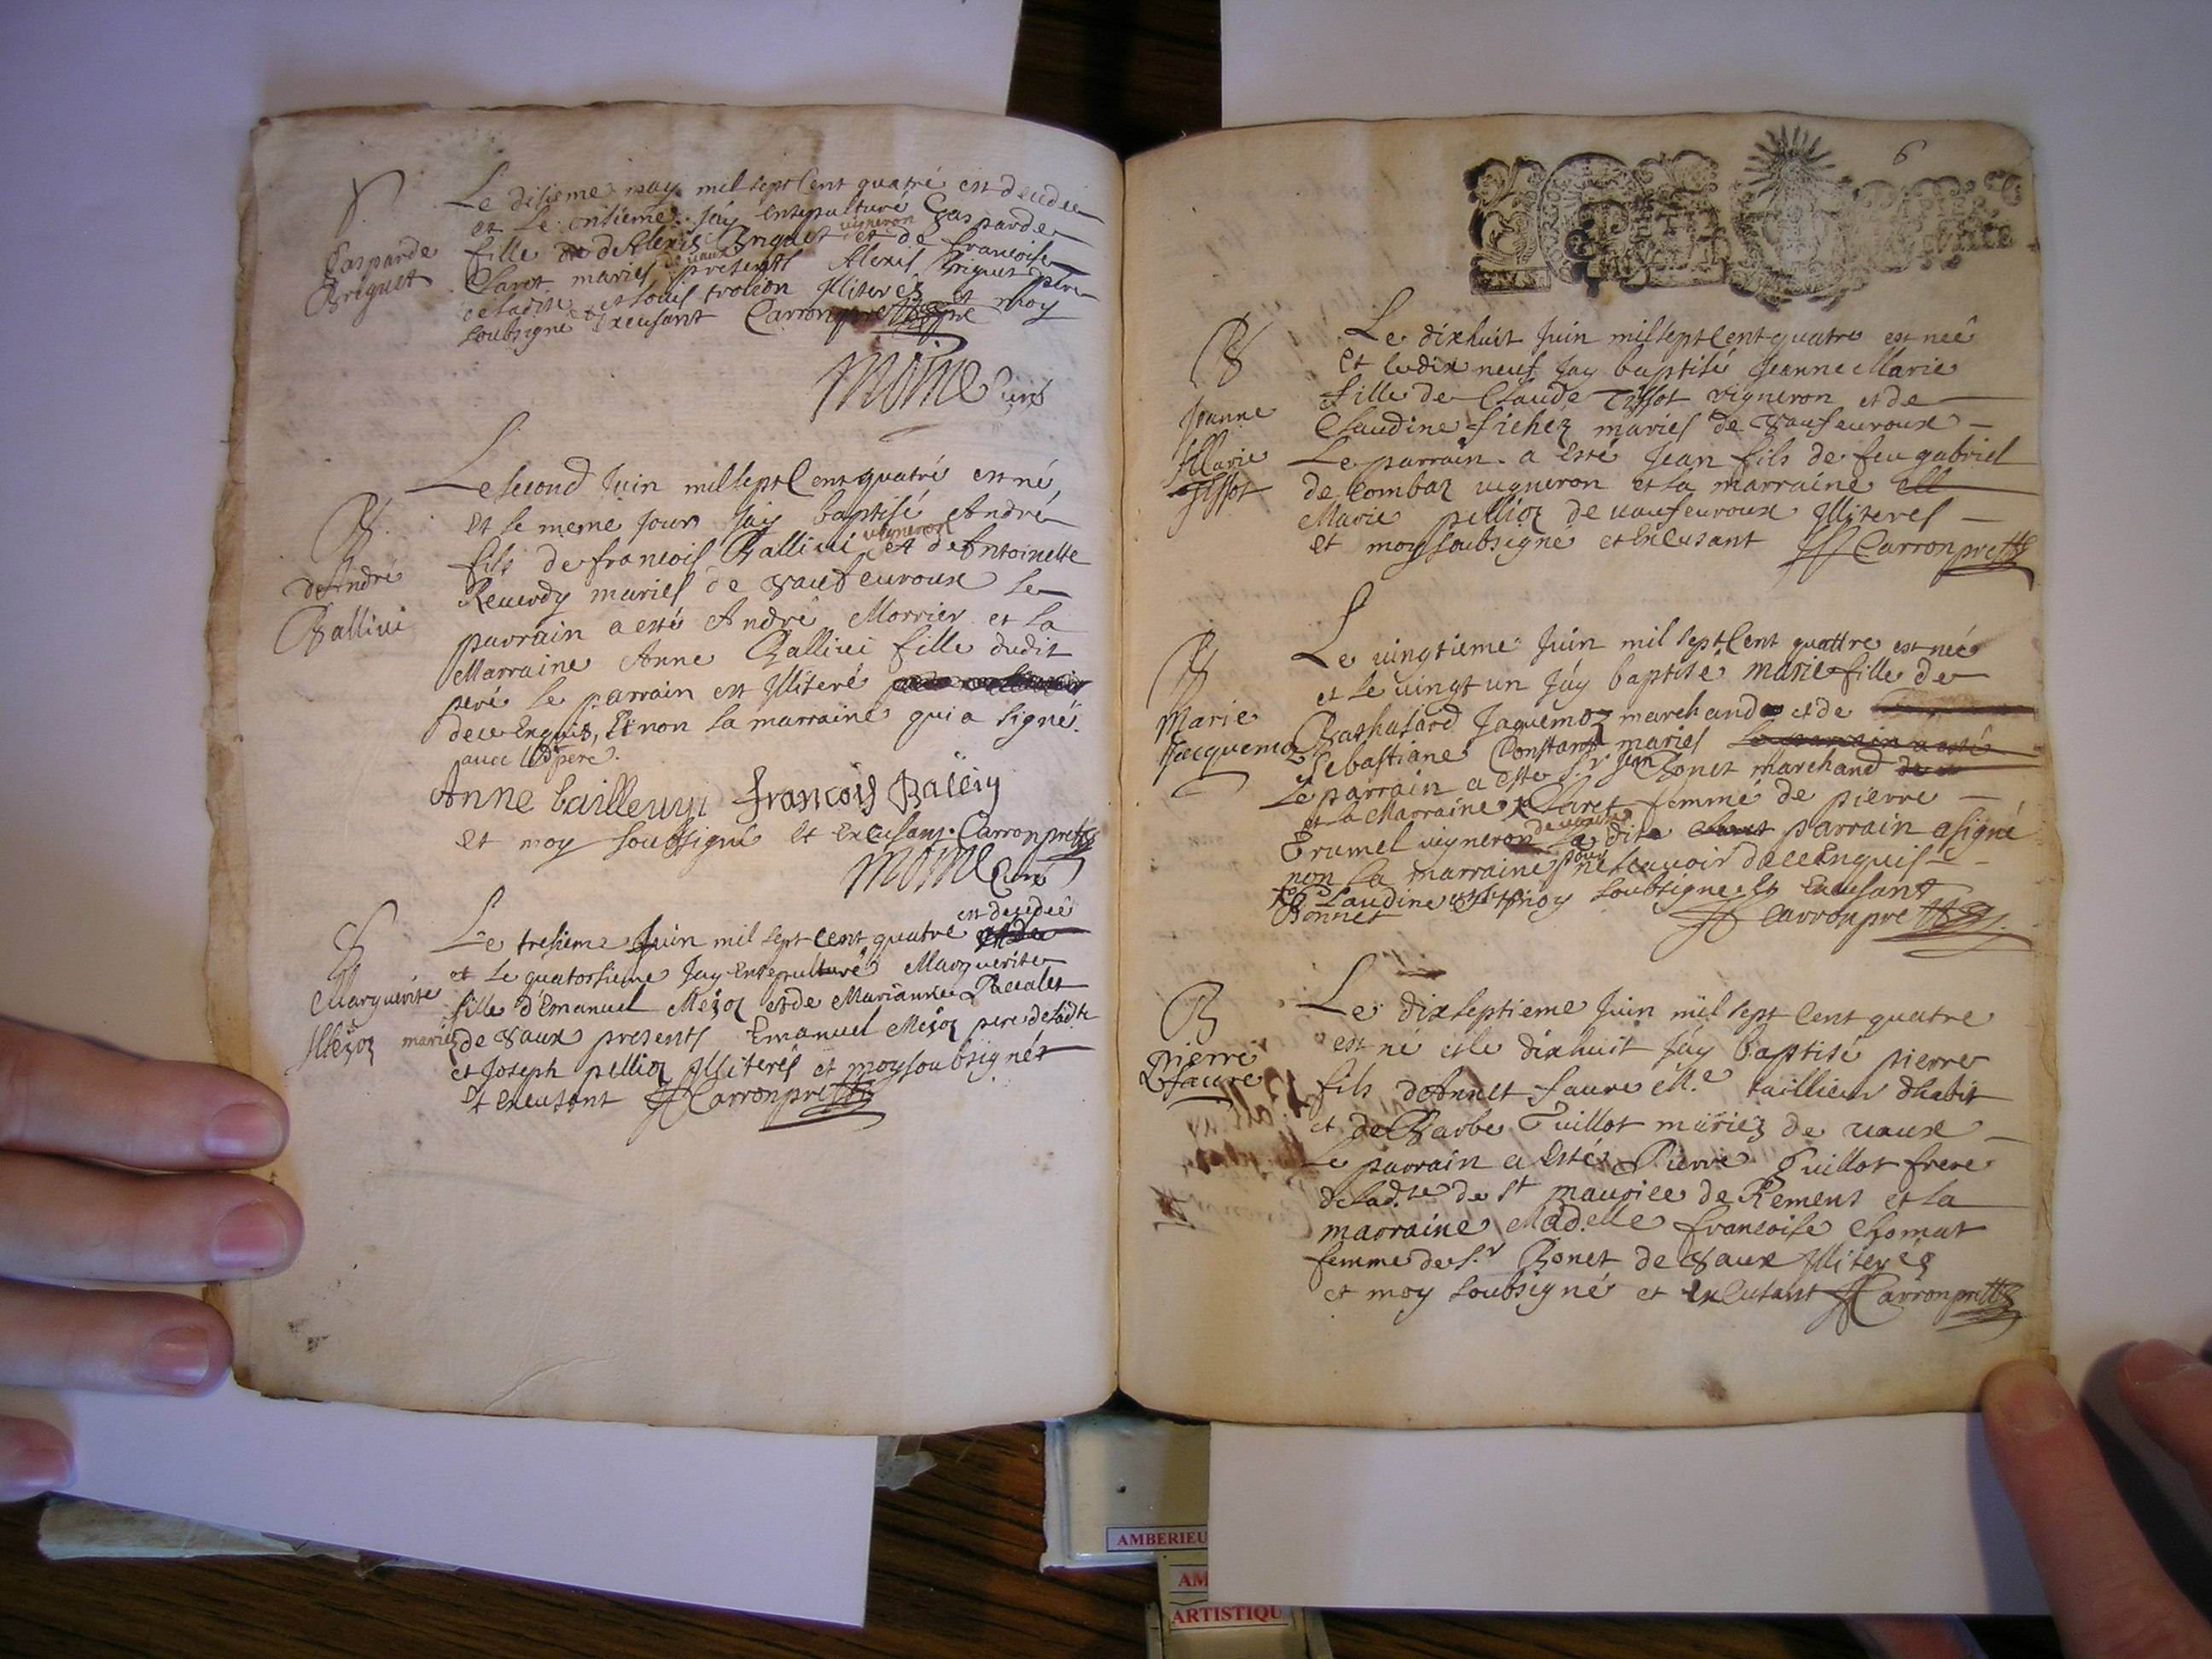 Le disieme may mil sept Cent quatre est decedee
et le onsieme Jay Ensepulturé Gasparde
fille de Alexis Briguet vigneron et de francoise
Claret mariés de vaux presents Alexis Briguet pere
de ladite et Louis Illiterés et moy
soubsigné Excusant Carron pretre
Moine Curé
Gasparde
Briguet
Le second Juin mil sept Cent quatre est né
et le meme Jour Jay baptisé André
fils de francois Ballivi vigneron et de Antoinette
Reverdy mariés de vaufeuroux le
parrain a esté André Morrier et la
Marraine Anne Ballivi fille dudit
peré le parrain est Illiteré
de ce Enquis, Et non la marraine qui a signé
avec led pere.
Anne francois
et moy soubsigné et Excusant Carron pretre
Moine Curé
B
André
Ballivi
Le tresieme Juin mil sept cent quatre est decedeé
et le quatorsieme Jay Ensepulturé Marguerite
fille d'Emanuel Mejoz et de Marianne
mariés de vaux presents Emanuel Mejoz pere de ladte
et Joseph pellioz Illiterés et moy soubsigné
et Excusant Carron pretre
Marguerite
Mejoz
6
Le dixhuit Juin mil sept Cent quatre est neé
et le dix neuf Jay baptisé Jeanne Marie
fille de Claude Tissot vigneron et de
Claudine fichez mariés de vaufeuroux
Le parrain a Esté Jean fils de feu gabriel
de Combaz vigneron et la marraine
Marie pellioz de vaufeuroux Illiterés
et moy soubsigné et Excusant Carron pretre
B
Jeanne
Marie
Tissot
Le vingtieme Juin mil sept Cent quattre est née
et le vingt un Jay baptisé marie fille de
Balthasard Jaquemoz marchand et de
Sebastiane Constant mariés
Le parrain a esté Sr Jean Bonet marchand
et la Marraine x Claret femme de pierre
Trumel vigneron de vaux le dit parrain a signé
non la marraine pour ne scavoir de ce Enquis
x Claudine et moy soubsigné et Excusant
Bonnet Carron pretre
B
Marie
Jacquemoz
Le dixseptieme Juin mil sept Cent quatre
est né et le dixhuit Jay baptisé pierre
fils d'Annet faure Me taillieur dhabit
et de Barbe Guillot mariez de vaux
Le parrain a Esté Pierre Guillot frere
de ladte de St maurice de Remens et la
marraine Madelle francoise Chomat
femme de Sr Bonet de vaux Illiterés
et moy soubsigné et Excusant Carron pretre
B
Pierre
faure
AMBERIEU
AM
ARTISTIQU